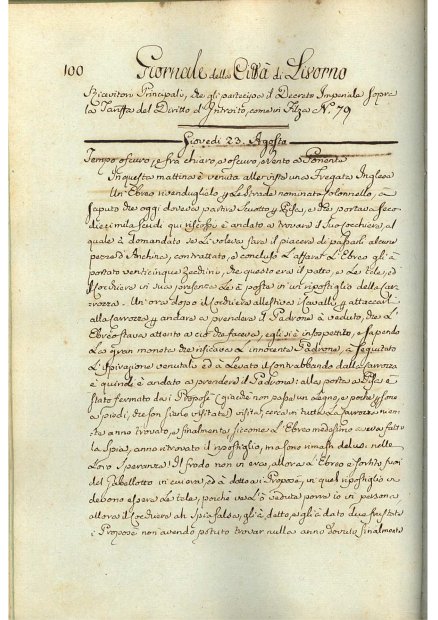 100 Giornale della Città di Livorno
Ricevitori Principale, che gli partecipa il Decreto Imperiale sopra
la Tariffa del Diritto d'Introito, come in Filza N.º 79
Giovedì 23. Agosto
Tempo oscuro, e frà chiaro, e oscuro, e vento a Ponente
In questa mattina è venuta alle viste una Fregata Inglese
Un Ebreo rivendugliolo p le Strade nominato Colonnello, à
saputo che oggi doveva partire Scuotto p Pisa, e che portava seco
dieci mila scudi qui riscossi è andato a trovare il suo Cocchiere, al
quale à domandato se Li voleva fare il piacere di passarli alcune
pezze d'Anchina, contrattato, e concluso L'affare L'Ebreo gli à
portato venticinque Zecchini, che questo era il patto, e Le tele, ed
il Cocchiere in sua presenza Le à poste in un ripostiglio della Car-
rozza. Un ora dopo il Cocchiere allestiva i Cavalli, p attaccarli
alla Carrozza p andare a prendere il Padrone à veduto, che L'
Ebreo stava attento a ciò che faceva, egli si è insospettito, e sapendo
La gran moneta che risicava L'innocente Padrone, à seguitato
L'Ispirazione venutali ed à Levato il contrabbando dalla Carrozza
e quindi è andato a prendere il Padrone: alla porta a Pisa è
stato fermato da i Proposti (giacchè non passa un Legno, e poche persone
a piedi, che non siano visitate) visita, cerca in tutta La Carrozza nien-
te anno trovato, e finalmente siccome L'Ebreo medesimo aveva fatto
la Spia, anno ritrovato il ripostiglio, ma sono rimasti delusi nelle
Loro Speranze: Il frodo non vi era, allora L'Ebreo è sortito fuori
del Gabellotto in cui era, ed à detto a i Proposti, in quel ripostiglio vi
debono essere Le tele, poichè ve L'ò vedute porre io in persona
allora il Cocchiere ah Spia falsa, gli à detto, e gli à dato due frustate
i Proposti non avendo potuto trovar nulla anno dovuto finalmente